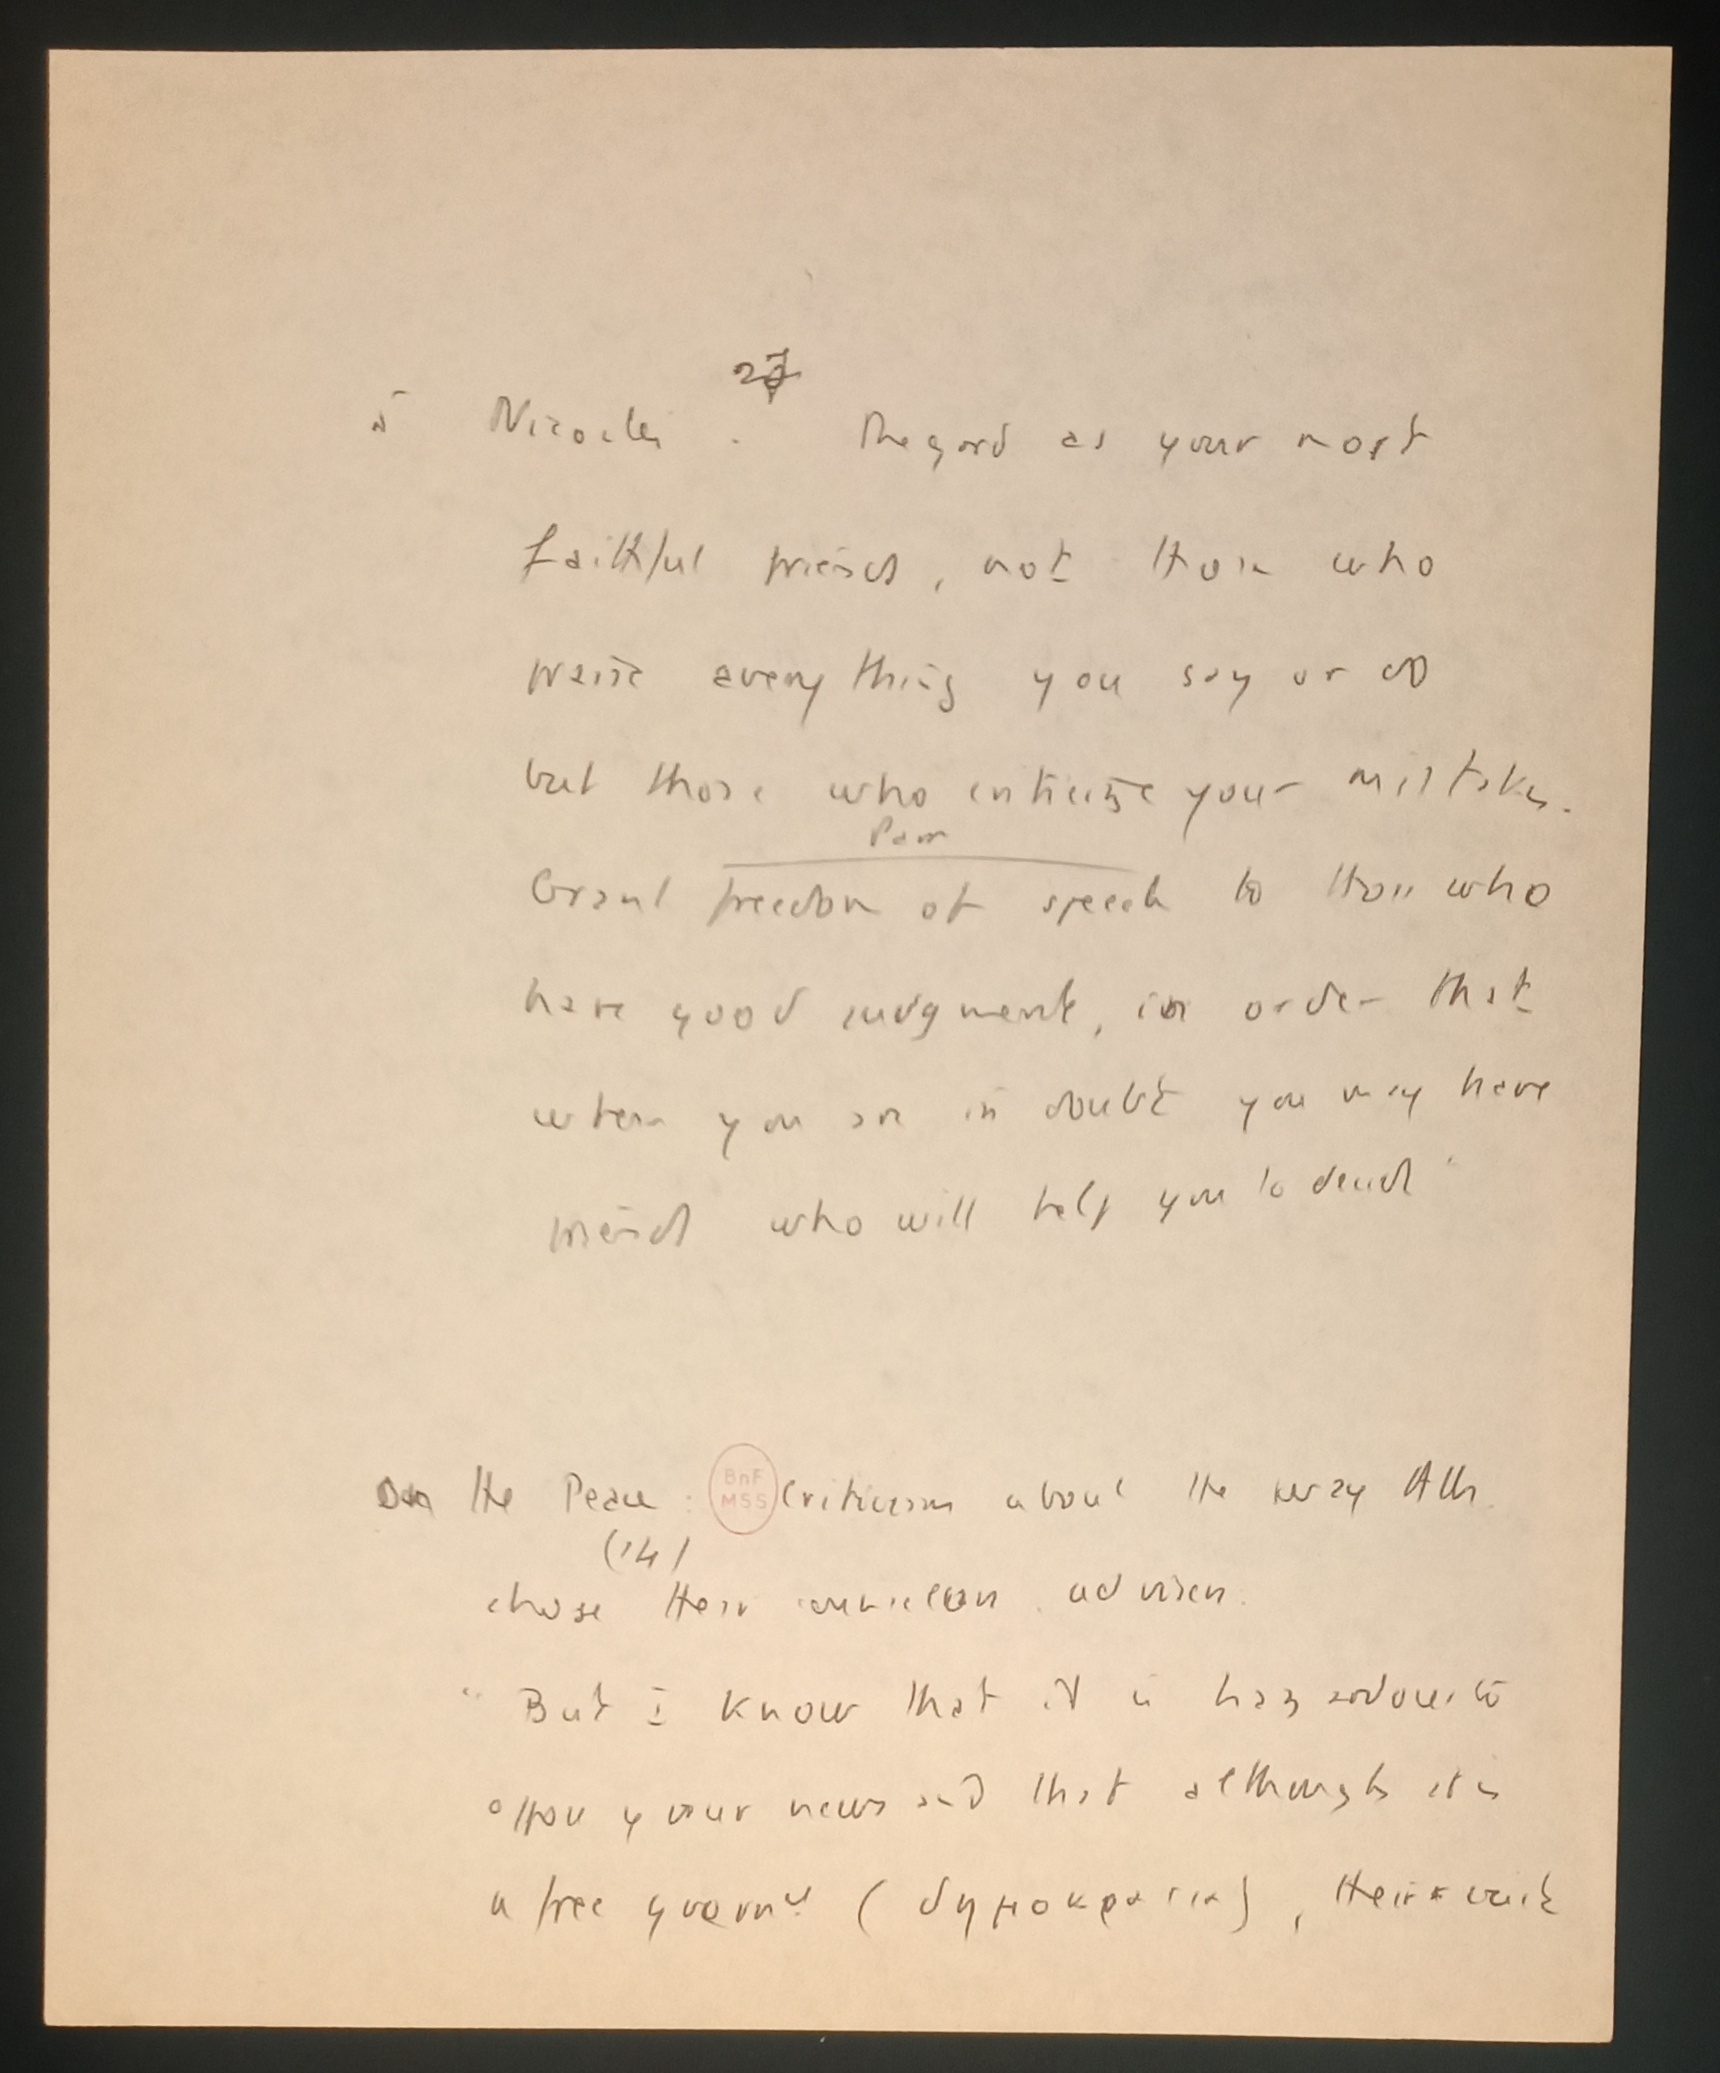 27
à Nicoclès. Regard as your most
faithful friends, not those who
praise everything you say or do
but those who criticize your mistakes.
Parr
Grant freedom of speech to those who
have good judgment, in order that
when you are in doubt you may have
friends who will help you to decide"
On the Peace : BnF MSS Criticism about the way Ath.
(14)
chose their advisers.
" But I know that it is hazardous to
oppose your views and that although it is
a free governt (δημοκρατια),